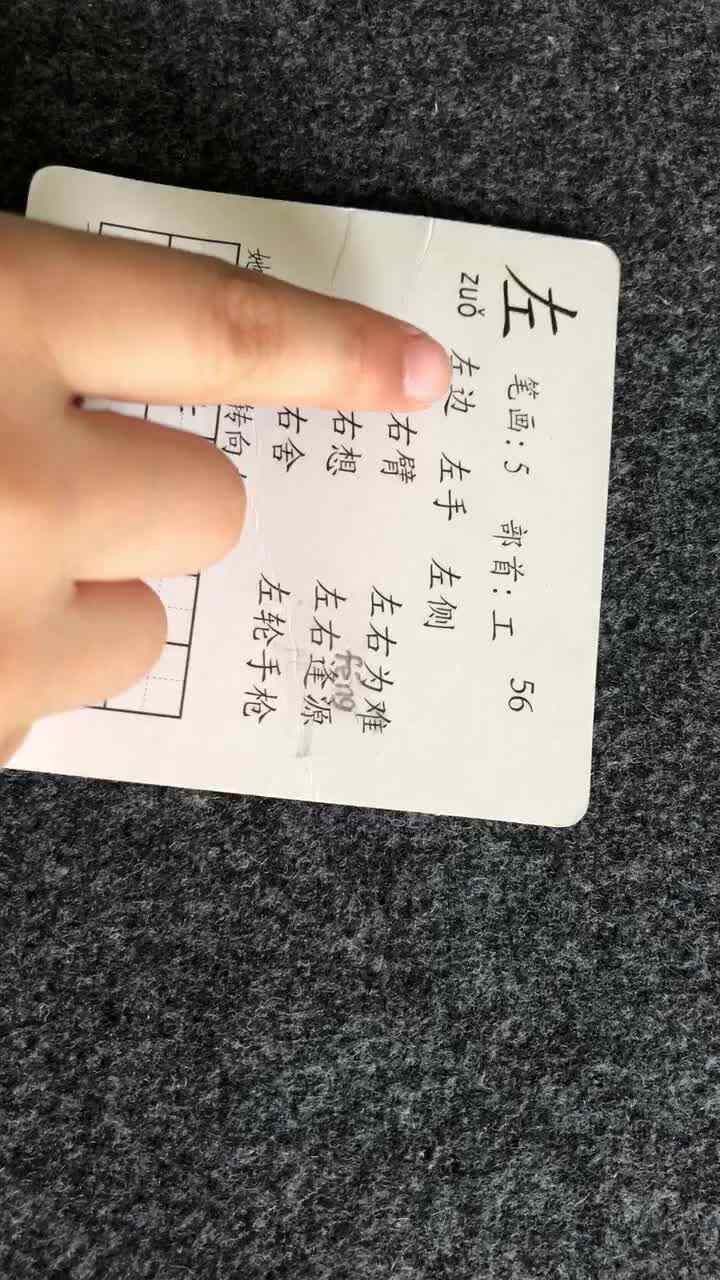 左 笔画:5 部首:工 56
zuǒ 左边 左手 左侧
右臂 左右为难
feng
右想 左右逢源
右舍 左轮手枪
她 转向